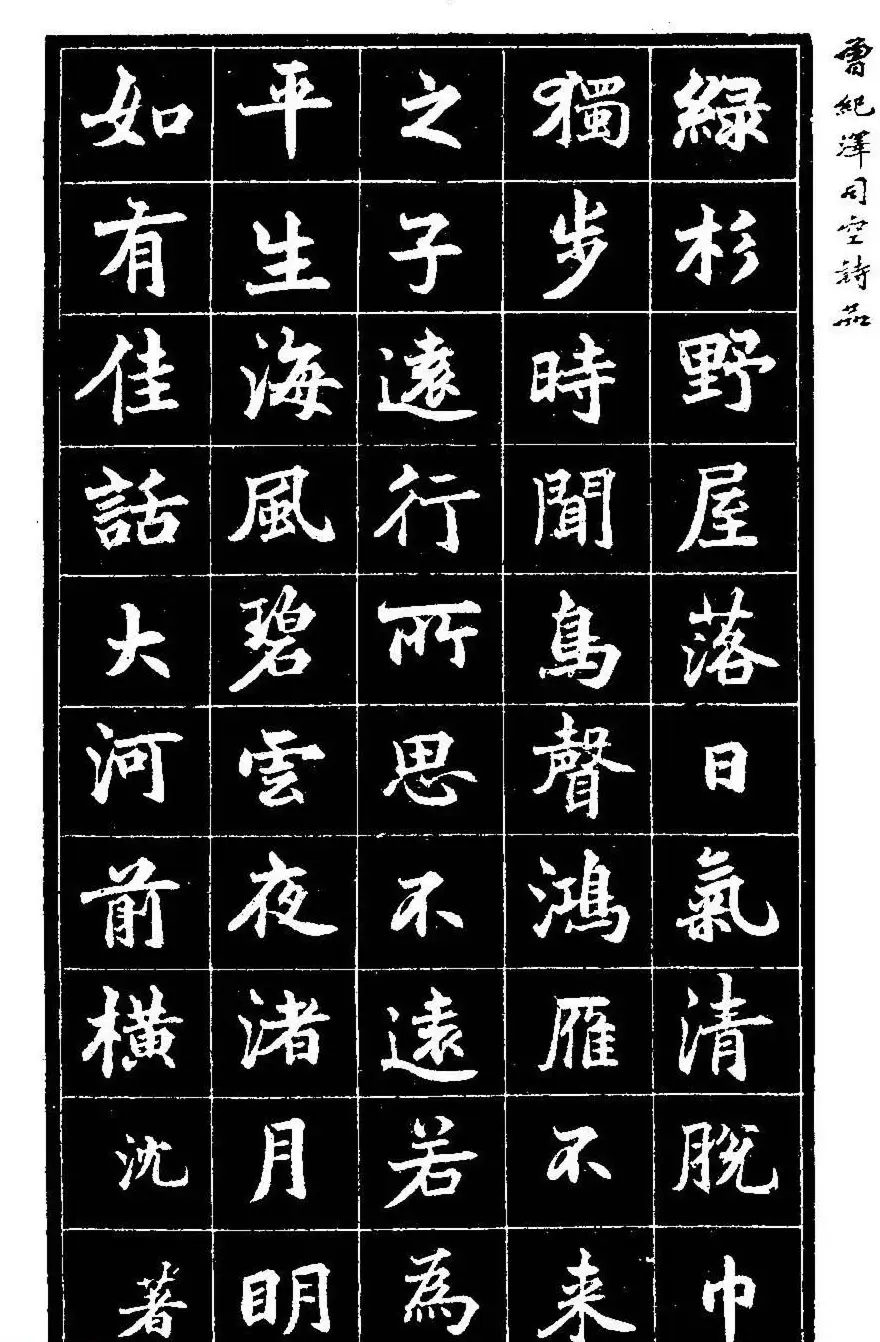 曾紀澤司空詩品
綠杉野屋落日氣清脫巾
獨步時聞鳥聲鴻雁不来
之子遠行所思不遠若為
平生海風碧雲夜渚月明
如有佳話大河前橫沈著